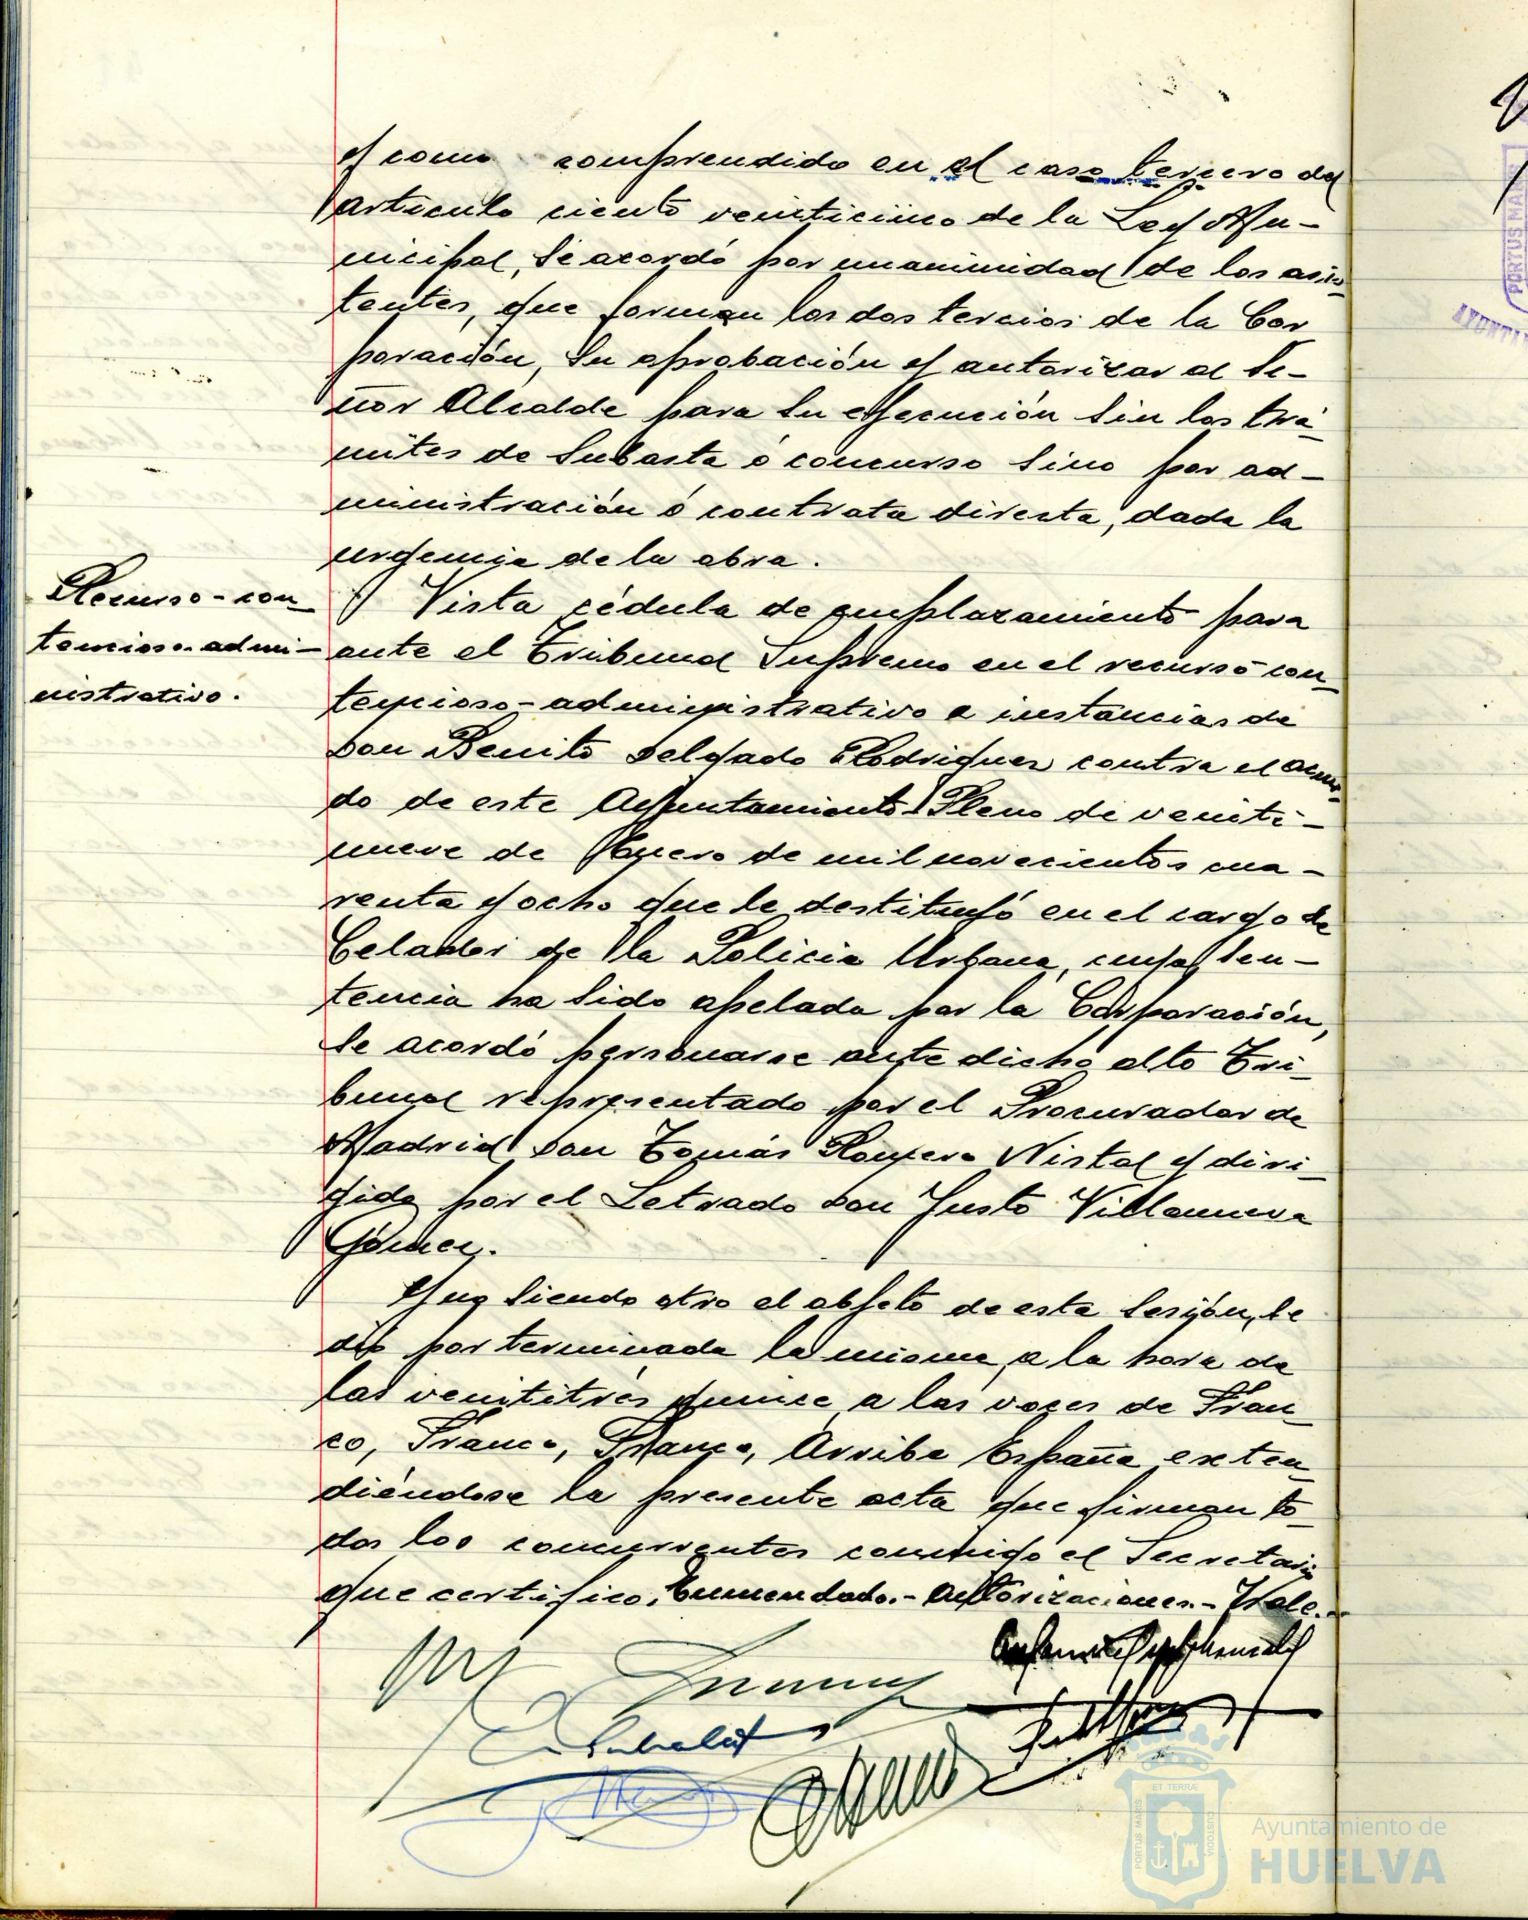 y como comprendido en el caso tercero del
artículo ciento veinticinco de la Ley Mu-
nicipal, se acordó por unanimidad de los asis-
tentes, que forman los dos tercios de la Cor
poración, su aprobación y autorizar al Se-
ñor Alcalde para su ejecución sin los trá-
mites de subasta ó concurso sino por ad-
ministración ó contrata directa, dada la
urgencia de la obra.
Recurso-con-
tencioso-admi-
nistrativo.
Vista cédula de emplazamiento para
ante el Tribunal Supremo en el recurso con-
tencioso-administrativo a instancias de
Don Benito Delgado Rodriguez contra el acuer-
do de este Ayuntamiento Pleno de veinti-
nueve de Enero de mil novecientos cua-
renta y ocho que le destituyó en el cargo de
Celador de la Policia Urbana, cuya sen-
tencia ha sido apelada por la Corporación,
se acordó personarse ante dicho alto Tri-
bunal representado por el Procurador de
Madrid Don Tomás Romero Nistal y diri-
gido por el Letrado Don Justo Villanueva
Gómez.
Y no siendo otro el objeto de esta sesión, se
dió por terminada la misma, a la hora de
las veintitrés quince a las voces de Fran-
co, Franco, Franco, Arriba España exten-
diéndose la presente acta que firman to-
dos los concurrentes conmigo el Secretario
que certifico. Enmendado.- autorizaciones.- Vale.-
PORTUS MARIS
AYUNTA
ET TERRAE
PORTUS MARIS
CUSTODIA
Ayuntamiento de
HUELVA